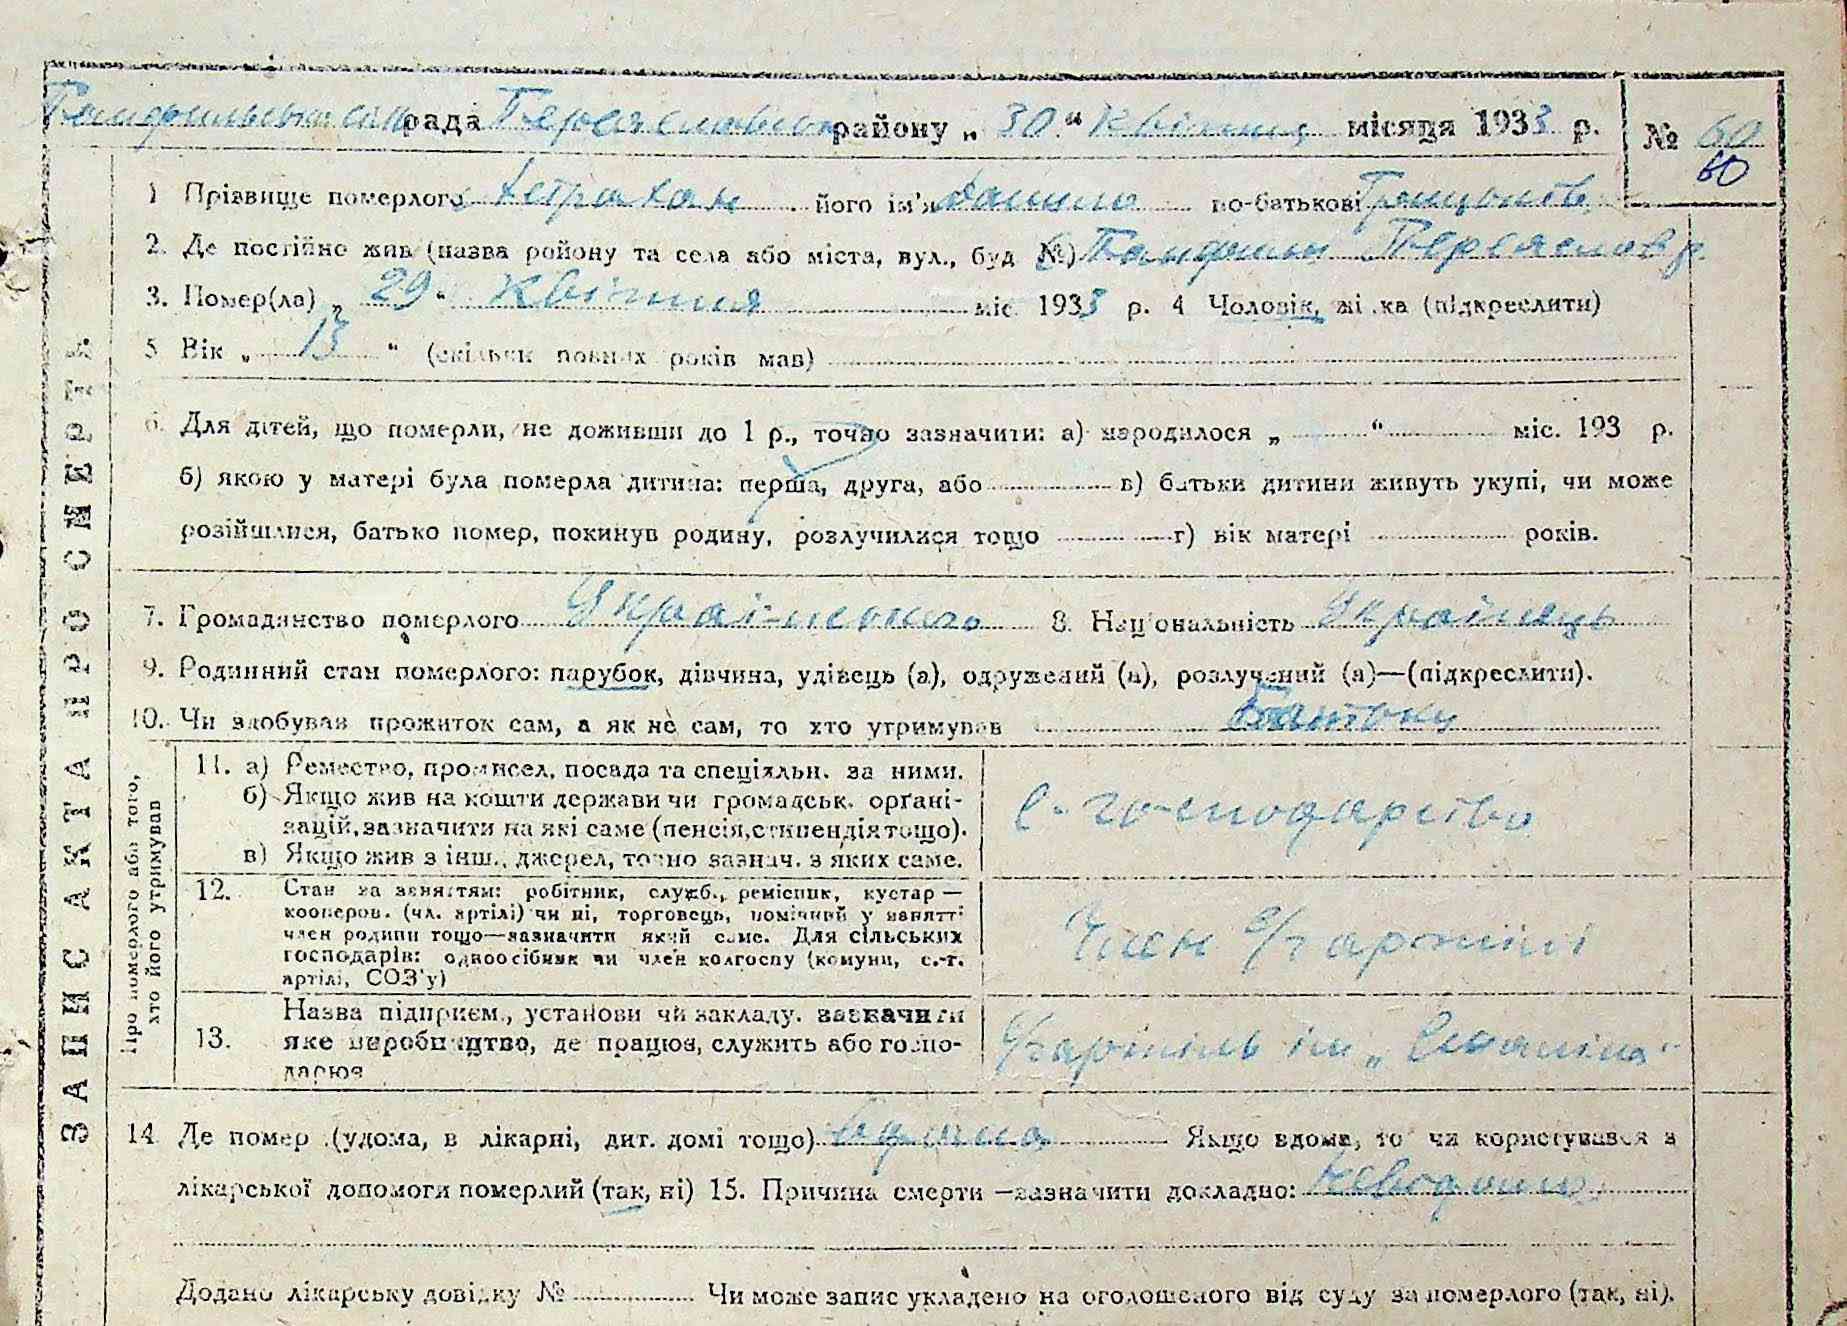 рада Переяславськ району „30" квітня місяця 1933 р. № 60
60
1 Прізвище померлого його ім'я Данило по-батькові
2. Де постійно жив (назва району та села або міста, вул., буд №) Переяслав р.
3. Помер(ла) „29" квітня міс. 1933 р. 4 Чоловік, жі ка (підкреслити)
5 Вік „13" (скільки повних років мав)
6. Для дітей, що померли, не доживши до 1 р., точно зазначити: а) народилося „ " міс. 193 р.
б) якою у матері була померла дитина: перша, друга, або в) батьки дитини живуть укупі, чи може
розійшлися, батько помер, покинув родину, розлучилися тощо г) вік матері років.
7. Громадянство померлого Українського 8. Національність Українець
9. Родинний стан померлого: парубок, дівчина, удівець (а), одружений (а), розлучений (а)—(підкреслити).
10. Чи здобував прожиток сам, а як не сам, то хто утримував
ЗАПИС АКТА ПРО СМЕРТЬ
Про померлого або того,
хто його утримував
11. а) Ремество, промисел, посада та спеціяльн. за ними.
б) Якщо жив на кошти держави чи громадськ. органі-
зацій, зазначити на які саме (пенсія, стипендія тощо).
в) Якщо жив з інш., джерел, точно зазнач. з яких саме.
с-господарство
12. Стан за заняттям: робітник, служб., ремісник, кустар —
кооперов. (чл. артілі) чи ні, торговець, помічний у занятті
член родини тощо—зазначити який саме. Для сільських
господарів: одноосібник чи член колгоспу (комуни, с.-г.
артілі, СОЗ'у)
Член с/г артілі
13. Назва підприєм., установи чи закладу. зазначити
яке виробництво, де працює, служить або госпо-
дарює
артіль ім „Сталіна"
14 Де помер (удома, в лікарні, дит. домі тощо) Якщо вдома, то чи користувався з
лікарської допомоги померлий (так, ні) 15. Причина смерти —зазначити докладно:
Додано лікарську довідку № Чи може запис укладено на оголошеного від суду за померлого (так, ні).